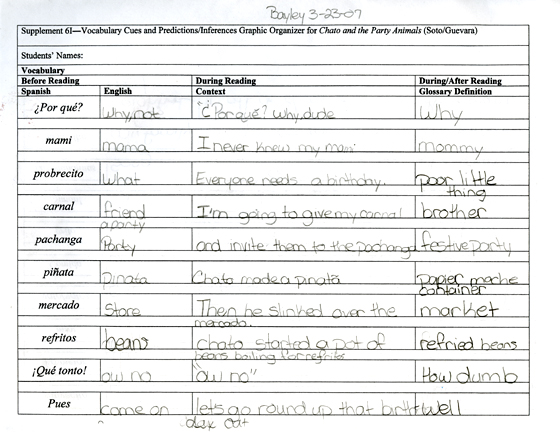 Bayley 3-23-07
Supplement 6I—Vocabulary Cues and Predictions/Inferences Graphic Organizer for Chato and the Party Animals (Soto/Guevara)
Students' Names:
Vocabulary
Before Reading During Reading During/After Reading
Spanish English Context Glossary Definition
¿Por qué? Why,not "¿Porqué? Why,dude Why
mami mama I never knew my mami mommy
probrecito What Everyone needs a birthday. poor little
thing
carnal friend I'm going to give my carnal brother
a party
pachanga Party and invite them to the pachanga festive party
piñata pinata Chato made a pinata papier mache
container
mercado Store Then he slinked over the market
mercado.
refritos beans chato started a pot of refried beans
beans boiling for refritos
¡Qué tonto! ow no "ow no" How dumb
Pues come on lets go round up that birth well
day cat